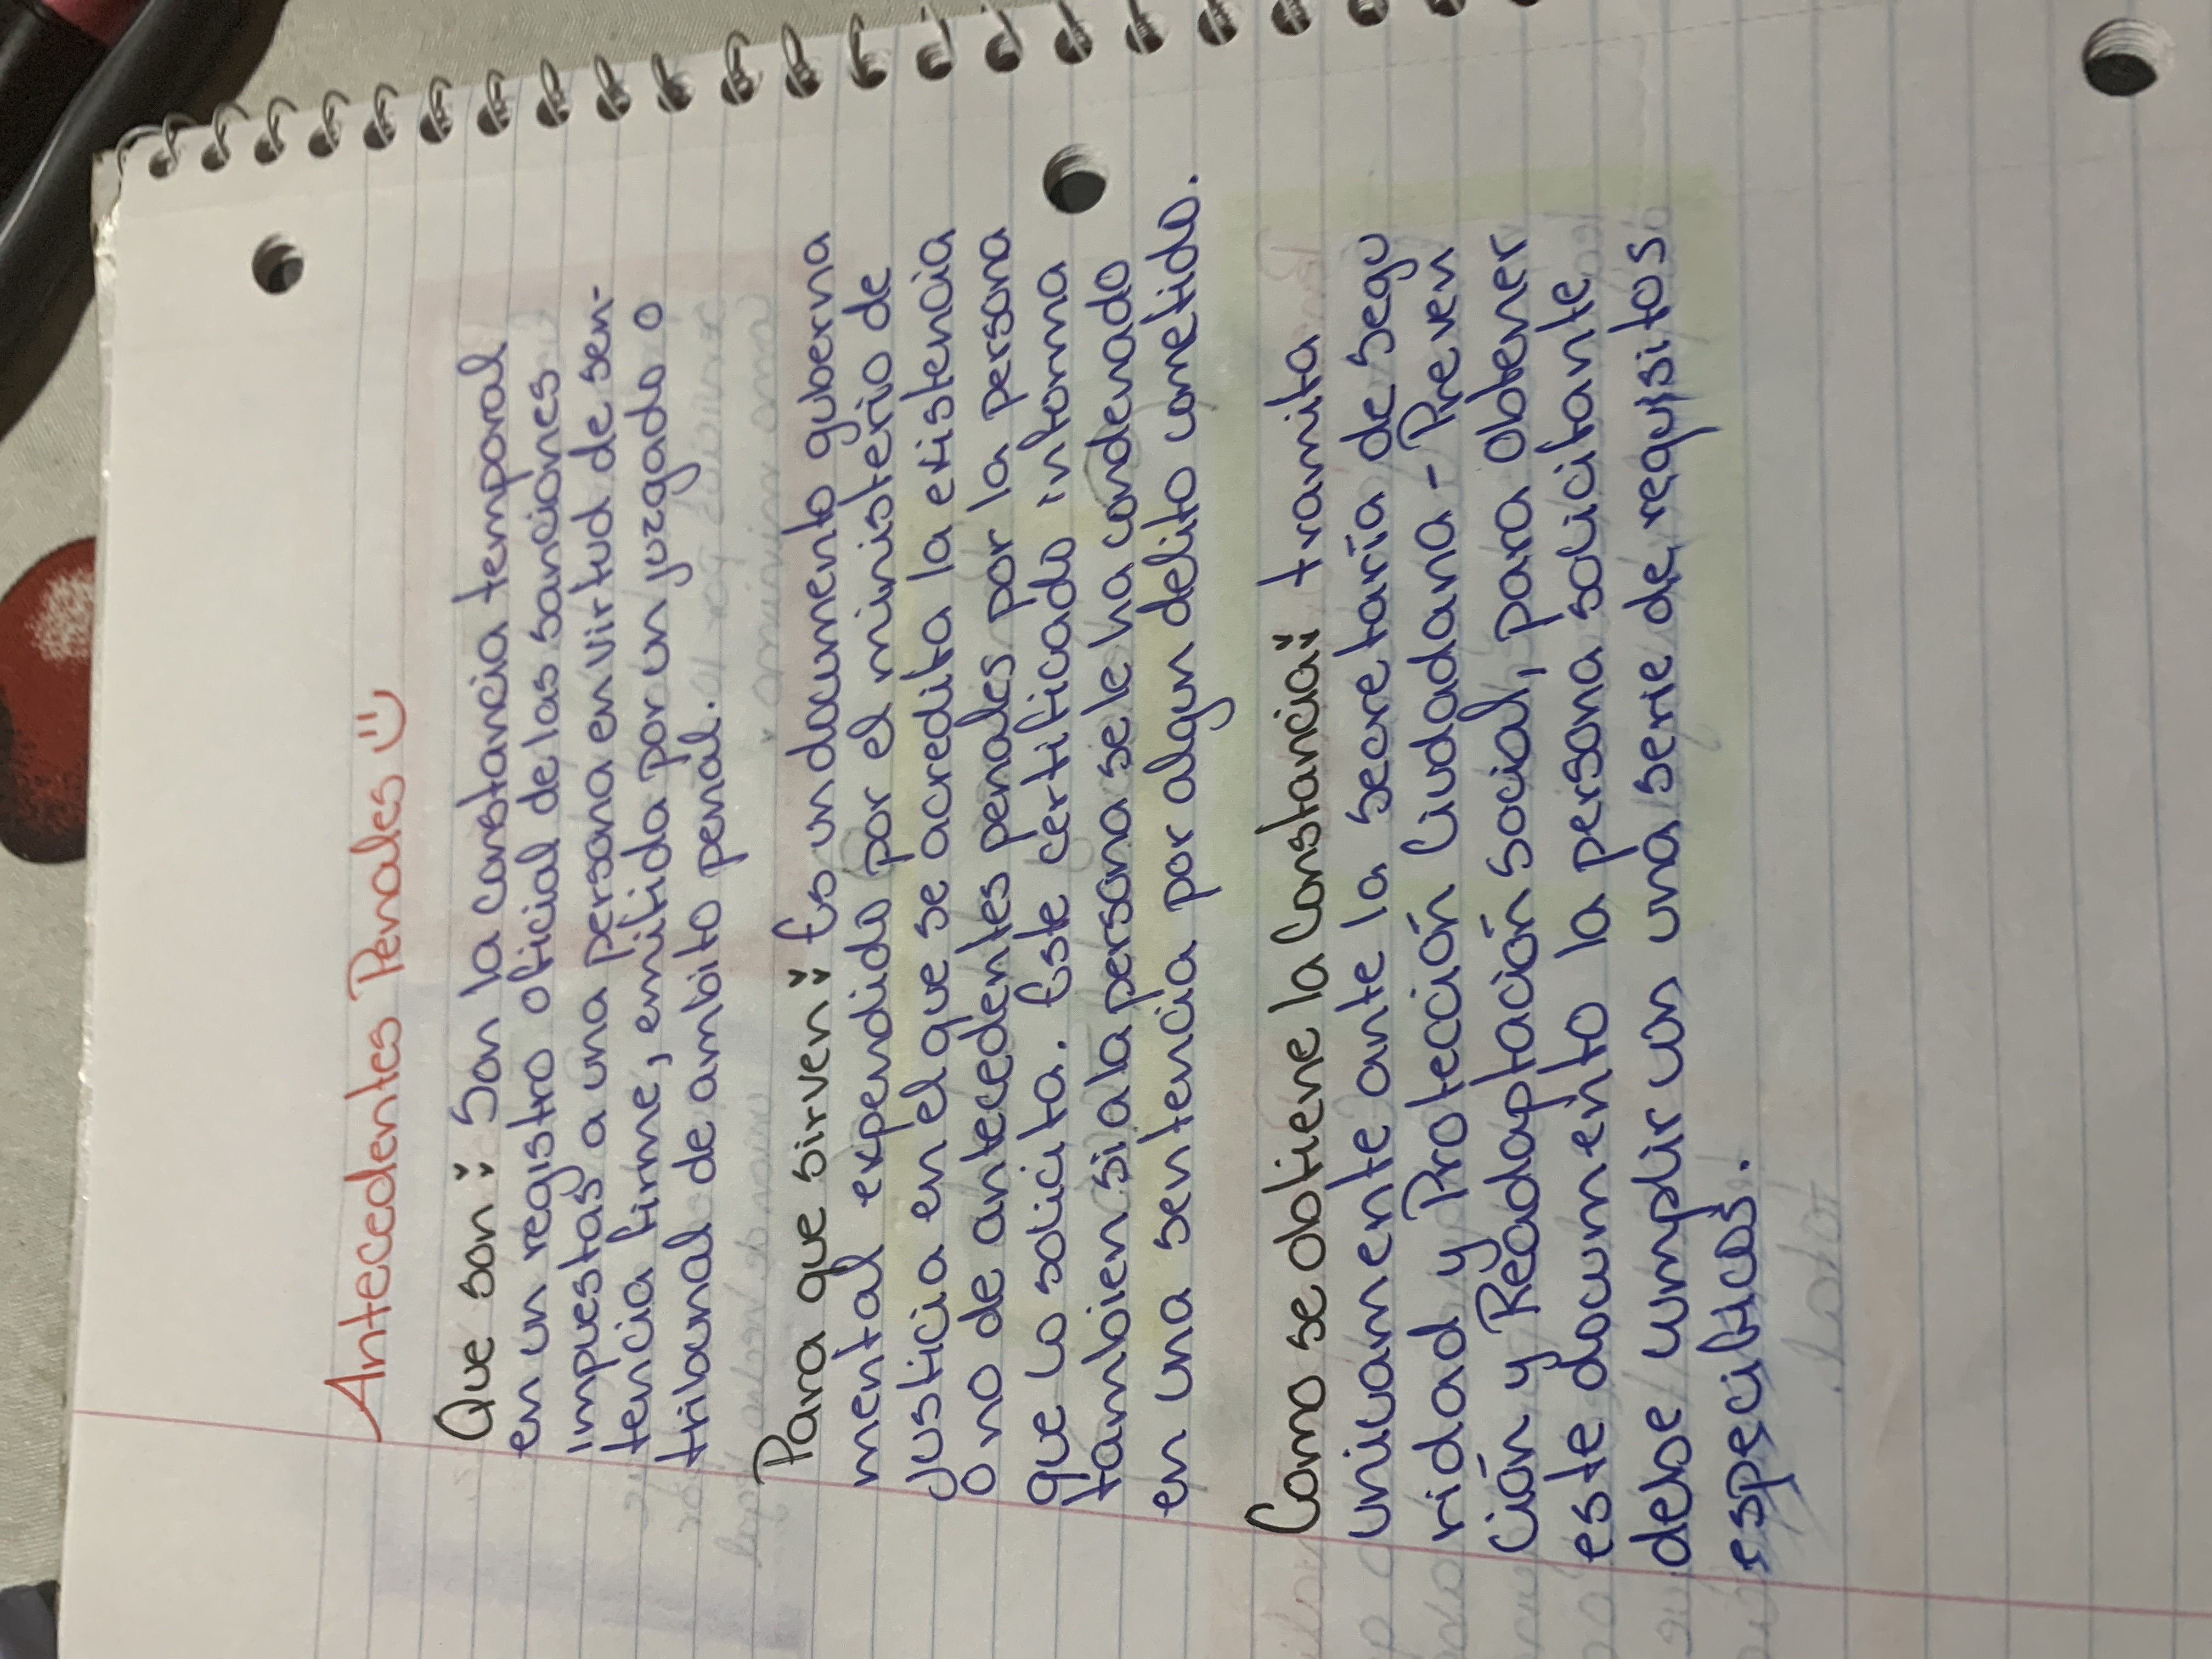 Antecedentes Penales :)
Que son: Son la constancia temporal
en un registro oficial de las sanciones
impuestas a una persona en virtud de sen-
tencia firme, emitida por un juzgado o
tribunal de ambito penal.
Para que sirven: Es un documento guberna
mental expendido por el ministerio de
justicia en el que se acredita la existencia
o no de antecedentes penales por la persona
que lo solicita. Este certificado informa
tambien si a la persona se le ha condenado
en una sentencia por algun delito cometido.
Como se obtiene la Constancia: tramita
unicamente ante la secretaría de segu
ridad y Protección Ciudadana - Preven
ción y Readaptación social, para obtener
este documento la persona solicitante
debe cumplir con una serie de requisitos
especificos.